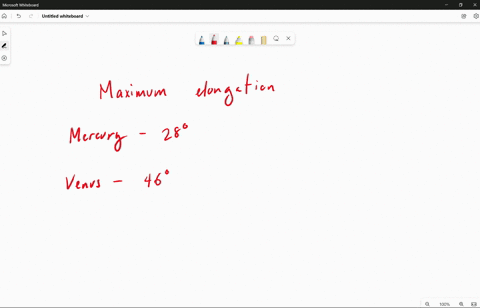 Microsoft Whiteboard
Untitled whiteboard
Maximum elongation
Mercury - 28°
Venus - 46°
100%